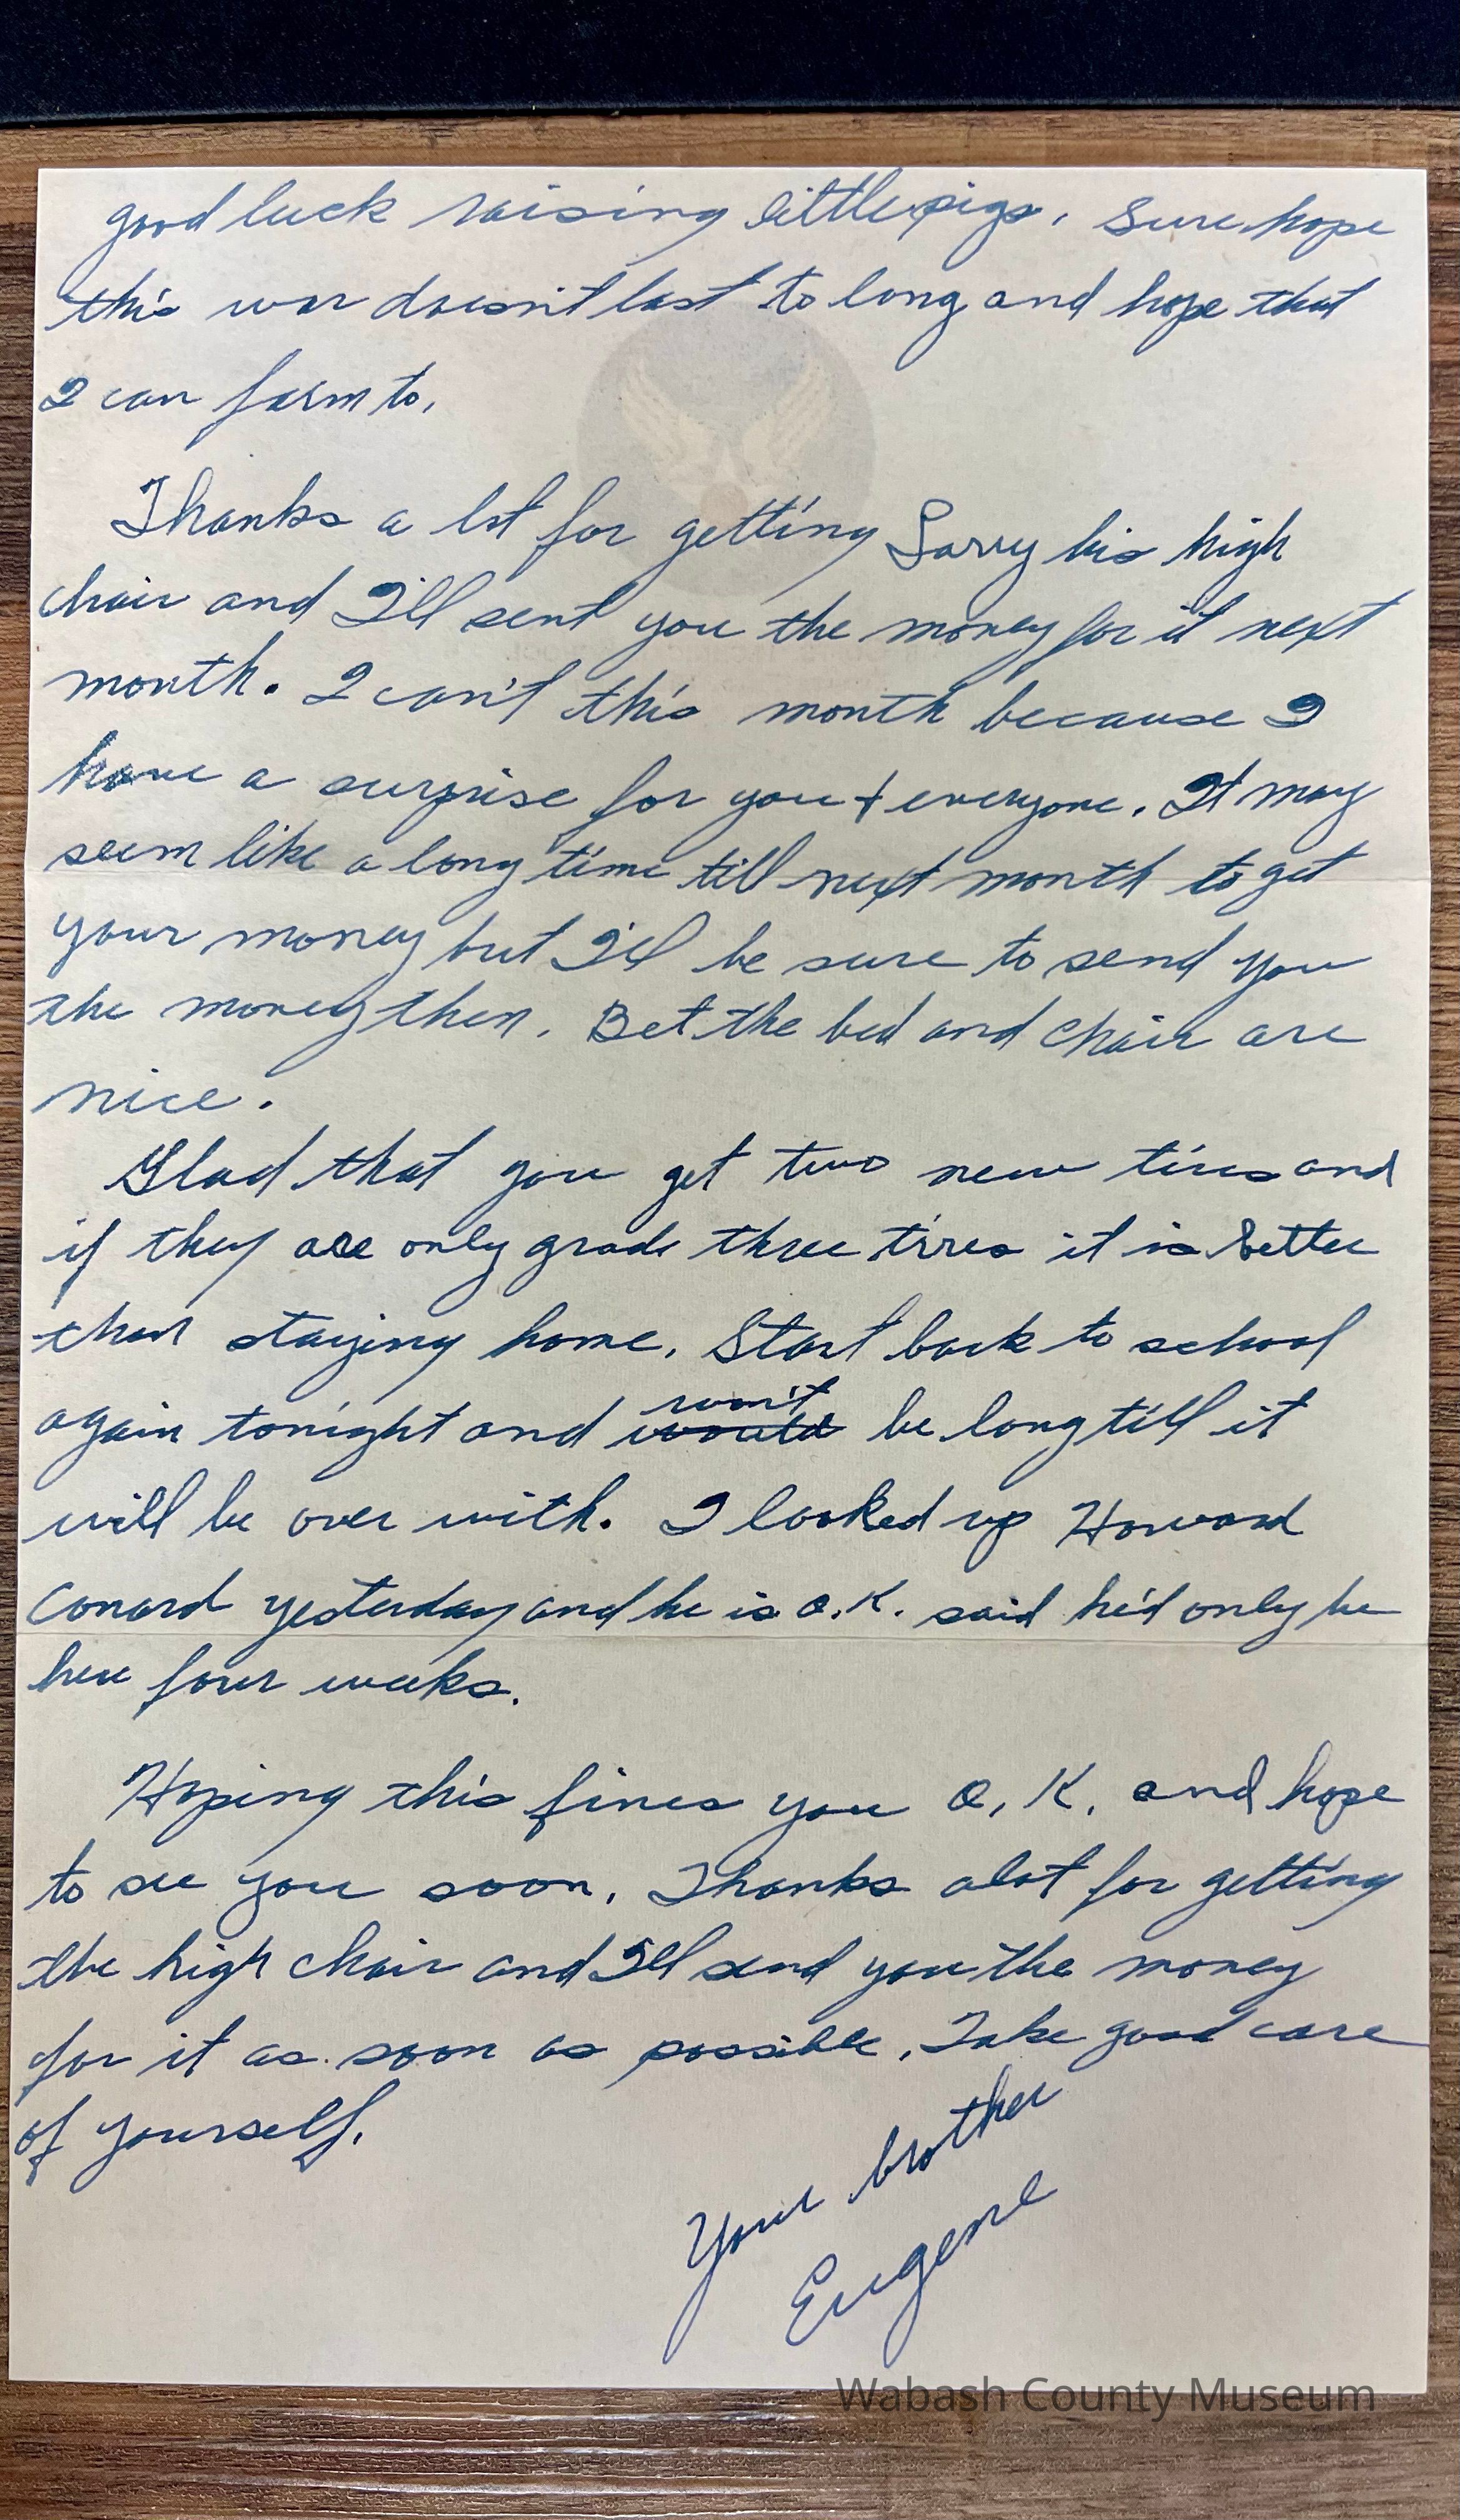 good luck raising little pigs. Sure hope
this war doesn't last to long and hope that
I can farm to.
Thanks a lot for getting Larry his high
chair and I'll sent you the money for it next
month. I can't this month because I
have a surprise for you + everyone. It may
seem like a long time till next month to get
your money but I'll be sure to send you
the money then. Bet the bed and chair are
nice.
Glad that you get two new tires and
if they are only grade three tires it is better
than staying home. Start back to school
again tonight and would won't be long till it
will be over with. I looked up Howard
Conard yesterday and he is O.K. said he'd only be
here four weeks.
Hoping this fines you O.K. and hope
to see you soon. Thanks alot for getting
the high chair and I'll send you the money
for it as soon as possible. Take good care
of yourself.
Your brother
Eugene
Wabash County Museum